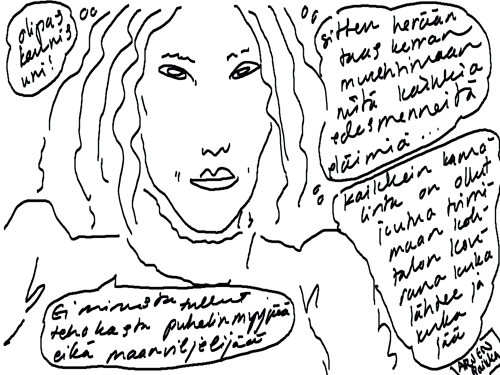 olipas
kaunis
uni!
sitten herään
taas kerran
murehtimaan
niitä kaikkia
edesmenneitä
eläimiä...
Kaikkein kamá
linta on ollut
joutua toimi
maan koh
talon kou
rana kuka
lähtee ja
kuka
jää
Ei minusta tullut
tehokasta puhelinmyyjää
eikä maanviljelijää
ARJEN